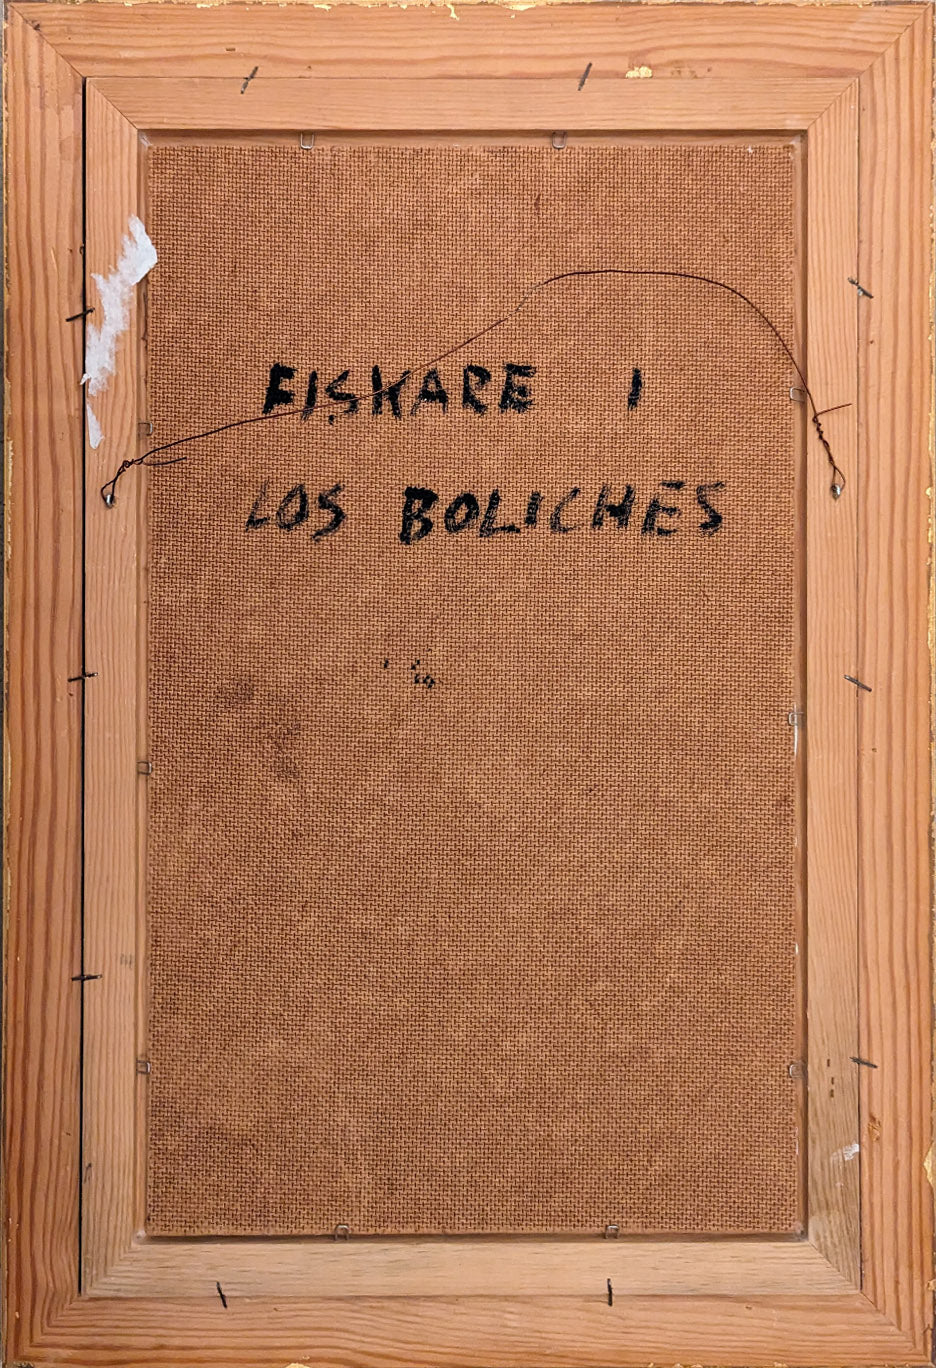 FISKARE I
LOS BOLICHES